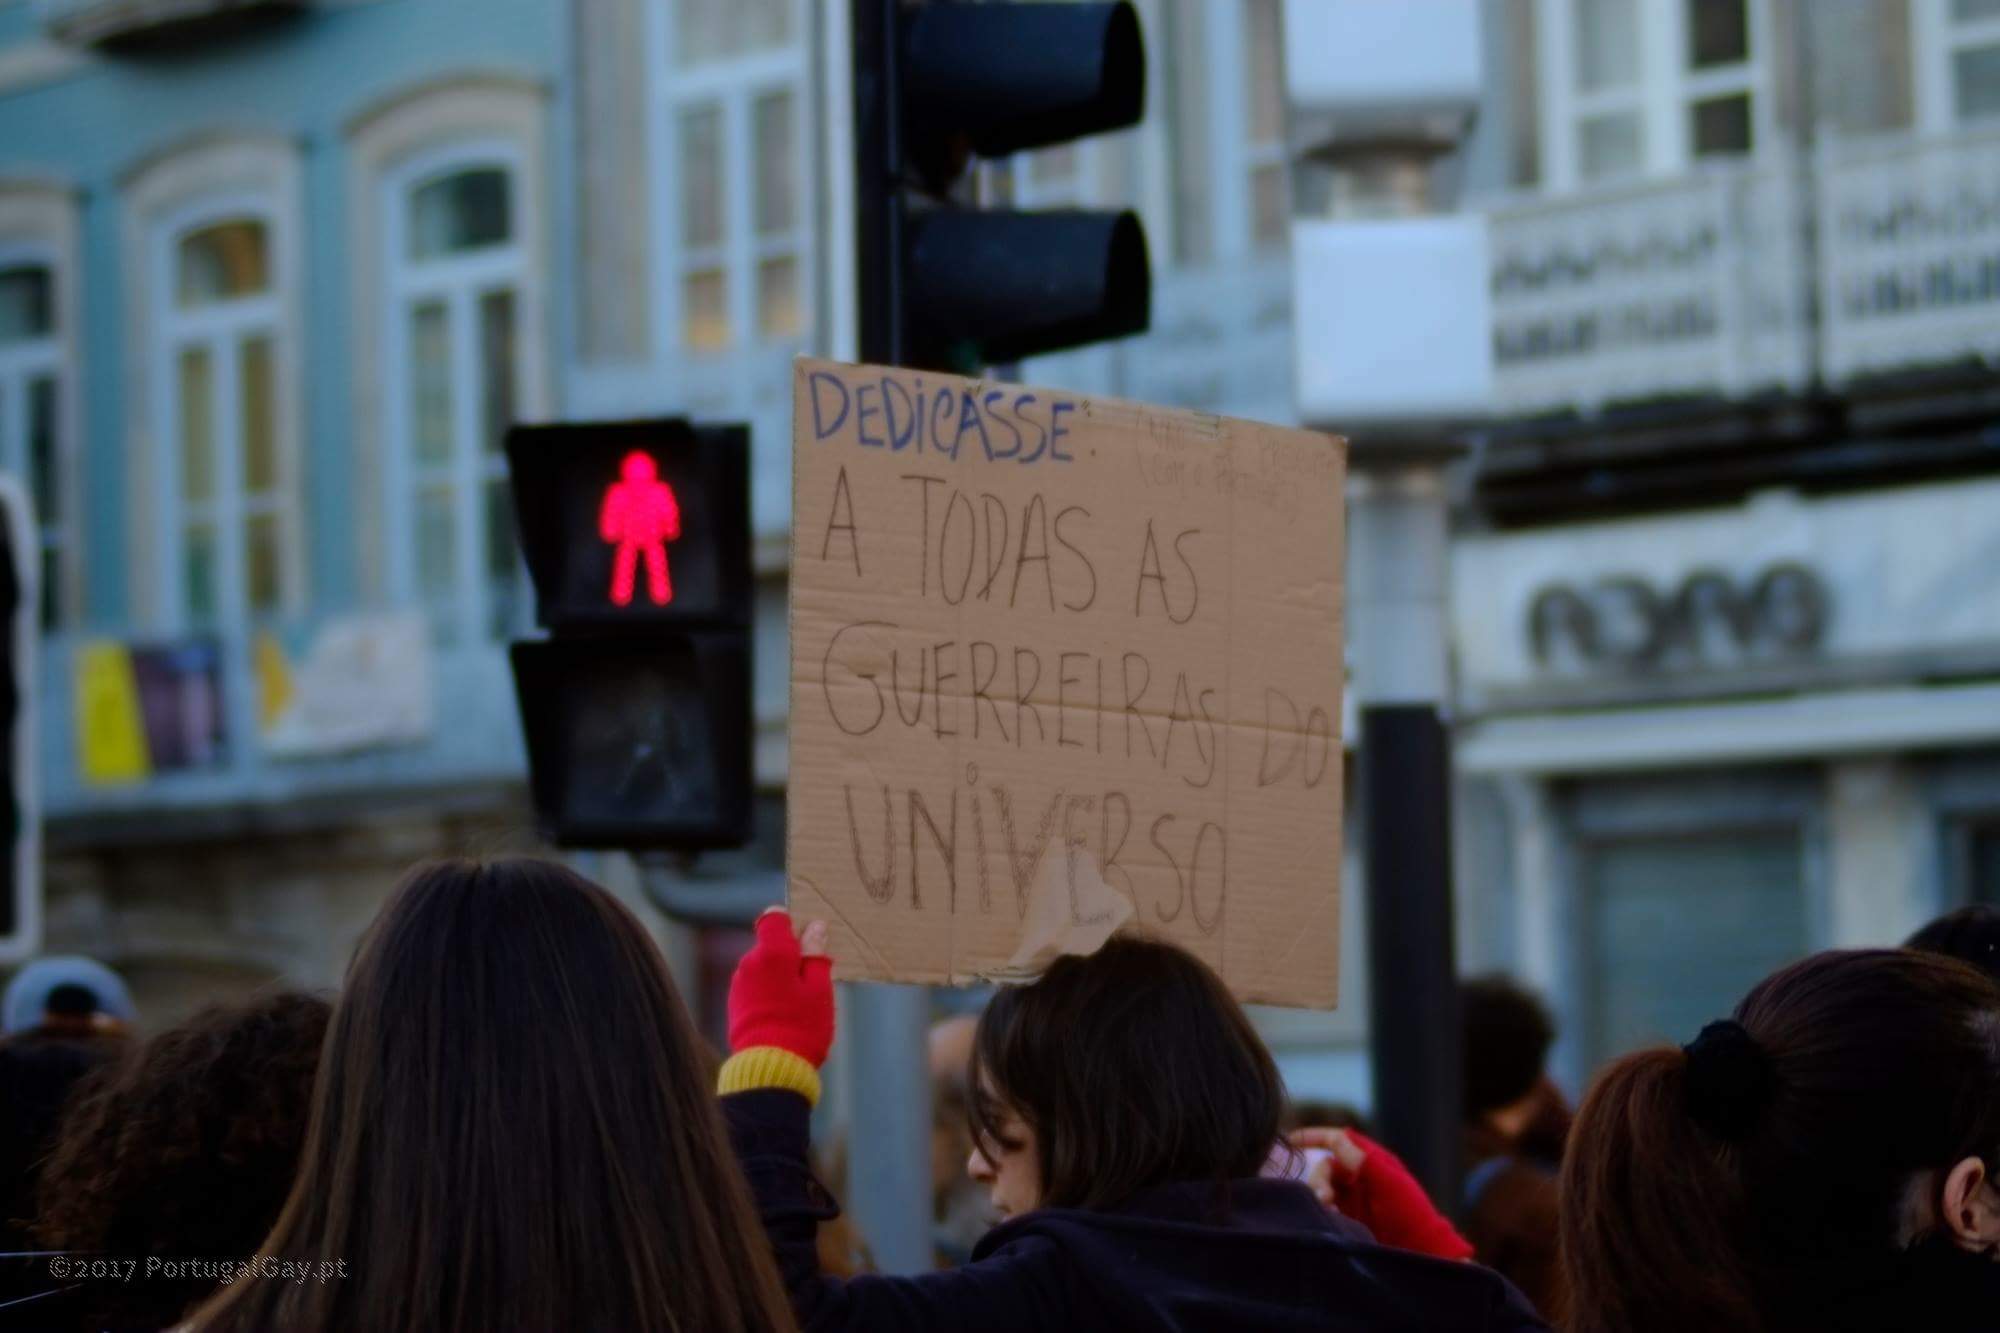 DEDICASSE:
A TODAS AS
GUERREIRAS DO
UNIVERSO
©2017 PortugalGay.pt